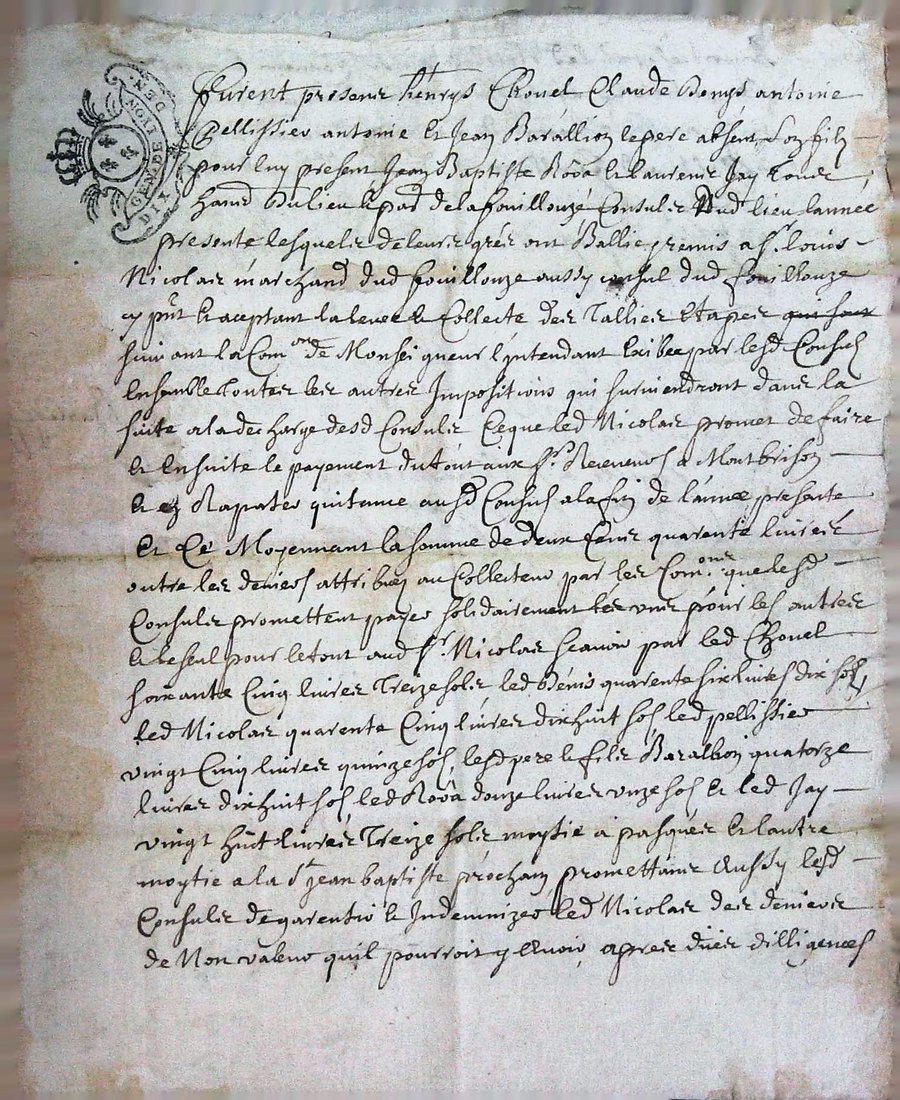 GEN. DE LION
DIX DEN.
furent presens henrys Chovel Claude Benys antoine
pellissier antoine et Jean Barallion le pere absent son filz
pour luy present Jean Baptiste Rôva et laurens Jay tous
hants du lieu et par de la fouillouze Consuls dud lieu lannee
presente lesquels de leurs gres ont Ballie premis a sr louis
Nicolas marchand dud fouillouze aussy consul dud fouillouze
cy pnt et aceptant la levee et Collecte des Tallies Etapes qui sont
suivant la Comon de Monseigneur l'intendant Exibee par lesd Consulz
Ensemble toutes les autres Impositions qui surviendront dans la
suite a la decharge desd Consuls Ce que led Nicolas promet de faire
et Ensuite le payement du tout aux srs Receveurs a Montbrison
et en Raporter quitance ausd Consulz a la fin de l'annee presente
Et Ce Moyennant la somme de deux Cens quarente livres
outre les deniers attribuez au Collecteur par les Comons que lesd
Consuls promettent payer solidairement les uns pour les autres
et le seul pour le tout aud sr Nicolas scavoir par led Chovel
soixante Cinq livres Treize sols led Benis quarente six livres dix solz
led Nicolas quarente Cinq livres dix huit solz led pellissier
vingt Cinq livres quinze solz lesd pere et filz Barallion quatorze
livres dix huit solz led Rôva douze livres unze solz et led Jay
vingt huit livres Treize sols moytie a pasques et lautre
moytie a la st jean baptiste prochain promettans Aussy lesd
Consuls de garentir et Indemnizer led Nicolas des deniers
de Non valeur quil pourroit y Avoir apres dües dilligences